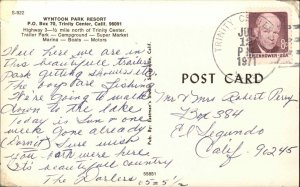 S-922
WYNTOON PARK RESORT
P.O. Box 70, Trinity Center, Calif. 96091
Highway 3—½ mile north of Trinity Center.
Trailer Park — Campground — Super Market
Marina — Boats — Motors
TRINITY CENTER
1971
EISENHOWER·USA
POST CARD
Dear
Here we are in
This beautiful trailer
Park getting showers etc.
The boys are fishing
Have going to walk
down to the lake
Today is Sun & one
week gone already
(darnit) Sure wish
you both were here
Its beautiful country
The Darlers
Mr & Mrs Robert Perry
Box 384
El Segundo
Calif. 90245
55851